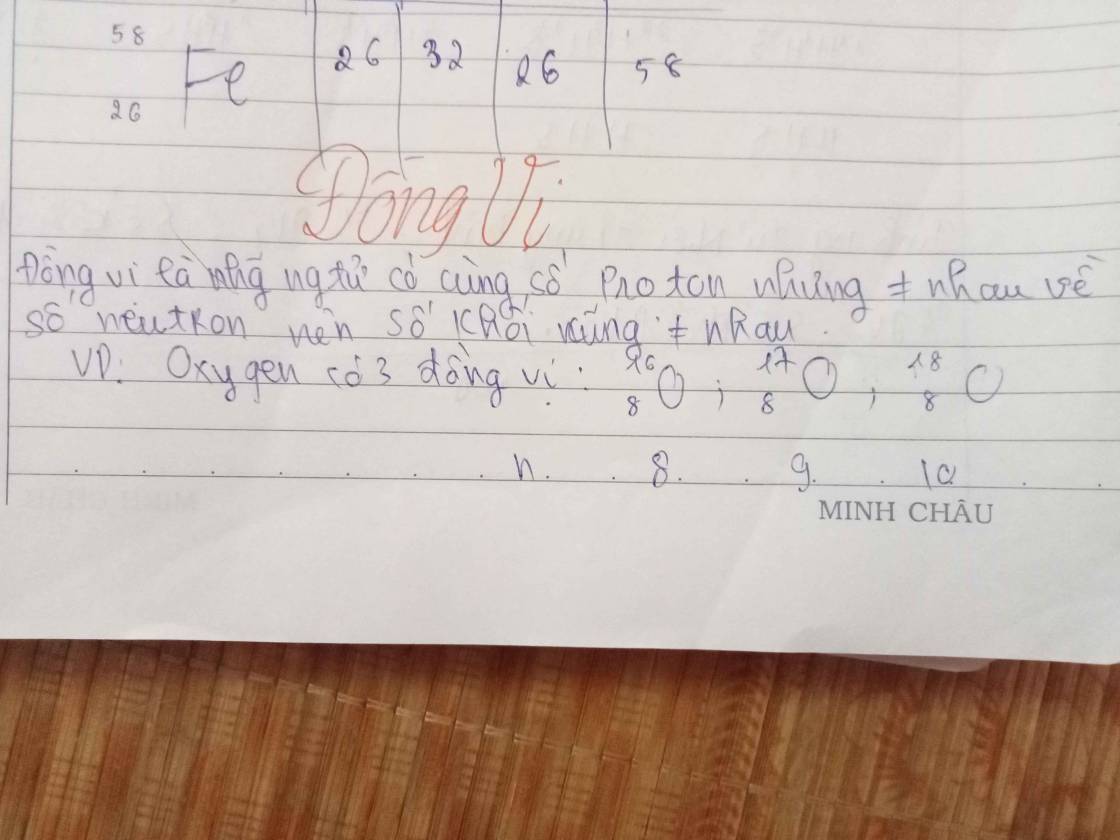 58
26 Fe 26 32 26 58
Đồng Vị
Đồng vị là nhg̃ ng tử có cùng số Proton nhưng ≠ nhau về
số neutron nên số khối cũng ≠ nhau.
VD: Oxygen có 3 đồng vị: 16 8 O ; 17 8 O ; 18 8 O
n 8 9 10
MINH CHÂU